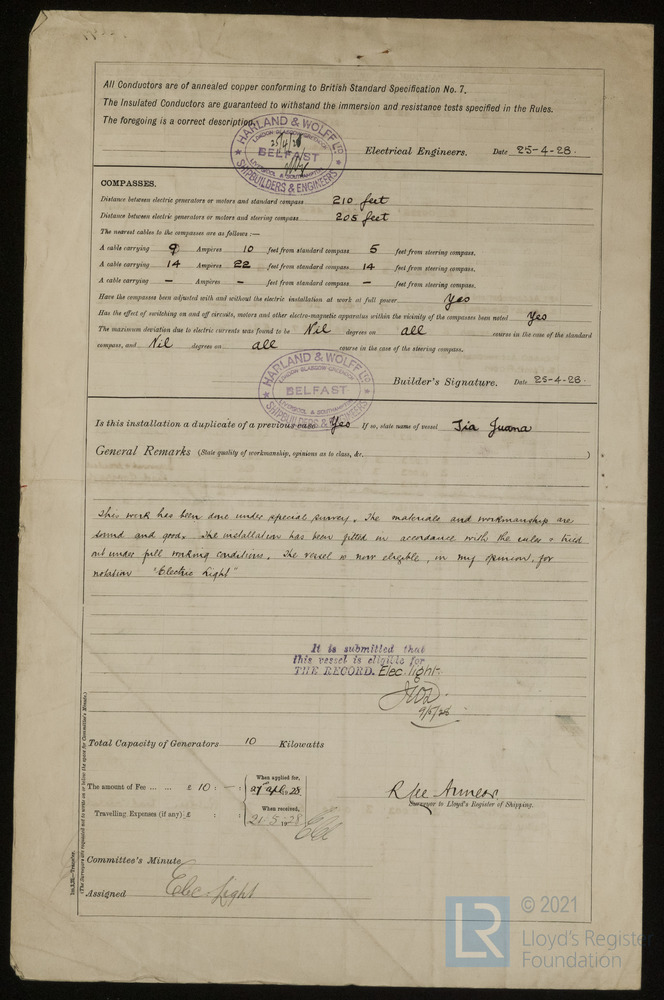 All Conductors are of annealed copper conforming to British Standard Specification No. 7.
The Insulated Conductors are guaranteed to withstand the immersion and resistance tests specified in the Rules.
The foregoing is a correct description.
HARLAND & WOLFF LTD
BELFAST
SHIPBUILDERS & ENGINEERS
Electrical Engineers. Date 25-4-28.
COMPASSES.
Distance between electric generators or motors and standard compass 210 feet
Distance between electric generators or motors and steering compass 205 feet
The nearest cables to the compasses are as follows:—
A cable carrying 9 Ampères 10 feet from standard compass 5 feet from steering compass.
A cable carrying 14 Ampères 22 feet from standard compass 14 feet from steering compass.
A cable carrying – Ampères – feet from standard compass – feet from steering compass.
Have the compasses been adjusted with and without the electric installation at work at full power Yes
Has the effect of switching on and off circuits, motors and other electro-magnetic apparatus within the vicinity of the compasses been noted Yes
The maximum deviation due to electric currents was found to be Nil degrees on all course in the case of the standard
compass, and Nil degrees on all course in the case of the steering compass.
HARLAND & WOLFF LTD
BELFAST
SHIPBUILDERS & ENGINEERS
Builder's Signature. Date 25-4-28.
Is this installation a duplicate of a previous case Yes If so, state name of vessel Tia Juana
General Remarks (State quality of workmanship, opinions as to class, &c. )
This work has been done under special survey. The materials and workmanship are
sound and good. The installation has been fitted in accordance with the rules & tried
out under full working conditions. The vessel is now eligible, in my opinion, for
notation "Electric Light"
It is submitted that
this vessel is eligible for
THE RECORD. Elec. light.
9/5/28
Total Capacity of Generators 10 Kilowatts
The amount of Fee ... ... £ 10 : – :
When applied for,
27 Apl 1928
Travelling Expenses (if any) £ : :
When received,
21.5.1928
Surveyor to Lloyd's Register of Shipping.
Committee's Minute
Assigned Elec. Light
(The Surveyors are requested not to write on or below the space for Committee's Minute.)
LR © 2021
Lloyd's Register
Foundation